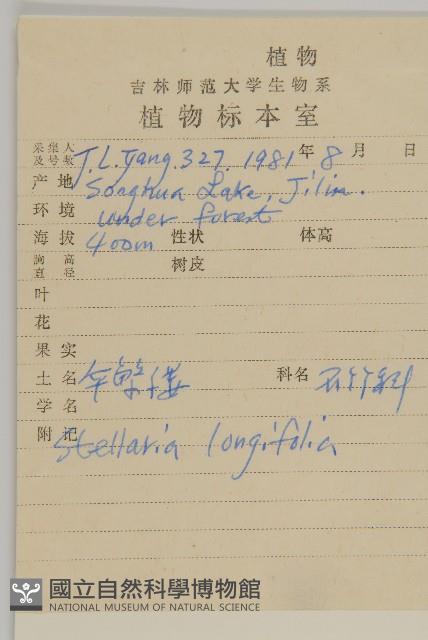 植物
吉林师范大学生物系
植物标本室
采集人及号数 J.L.Yang. 327. 1981 年 8 月 日
产地 Songhua Lake, Jilin.
环境 under forest
海拔 400m 性状 体高
胸高直径 树皮
叶
花
果实
土名 伞繁缕 科名 石竹科
学名
附记 Stellaria longifolia
國立自然科學博物館
NATIONAL MUSEUM OF NATURAL SCIENCE